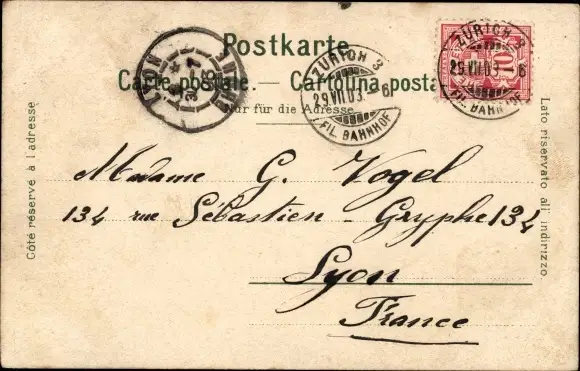 Postkarte
Carte postale. — Cartolina posta
Nur für die Adresse
Côté réservé à l adresse
Lato riservato all' indirizzo
ZÜRICH 3
29.VII.03. 6
FIL. BAHNHOF
ZÜRICH 3
29.VII.03. 6
FIL. BAHNHOF
10
LYON
RHONE
Madame G. Vogel
134 rue Sébastien - Gryphe 134
Lyon
France